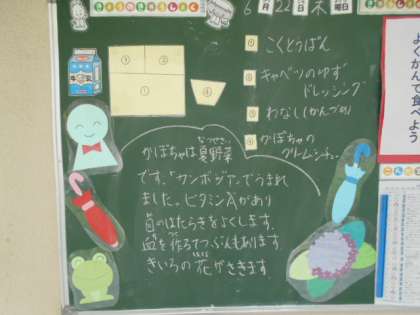 きょうのきゅうしょく
6月22日木曜日
① こくとうぱん
② キャベツのゆず
ドレッシング
③ わなし(かんづめ)
④ かぼちゃの
クリームシチュー
③
②
①
④
牛乳
なつやさい
かぼちゃは夏野菜
です。「カンボジア」でうまれ
ました。ビタミンAがあり
目のはたらきをよくします。
血を作るてつぶんもあります
はな
きいろの花がさきます
よくかんで食べよう